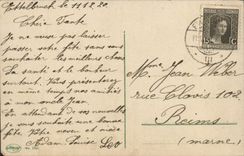 Ettelbruck le 11.8.20.
Chère Tante
Je ne veux pas laisser
passer votre fête sans vous
souhaiter les meilleurs vœux
La santé et le bonheur
Vous présenterez
en même temps nos amitiés
à mon oncle Jean
En attendant de vos nouvelles
vous souhaite une bonne
fête. Votre neveu et nièce
Louise Léo
Mme Jean Weber
rue Clovis 102
Reims
(Marne)